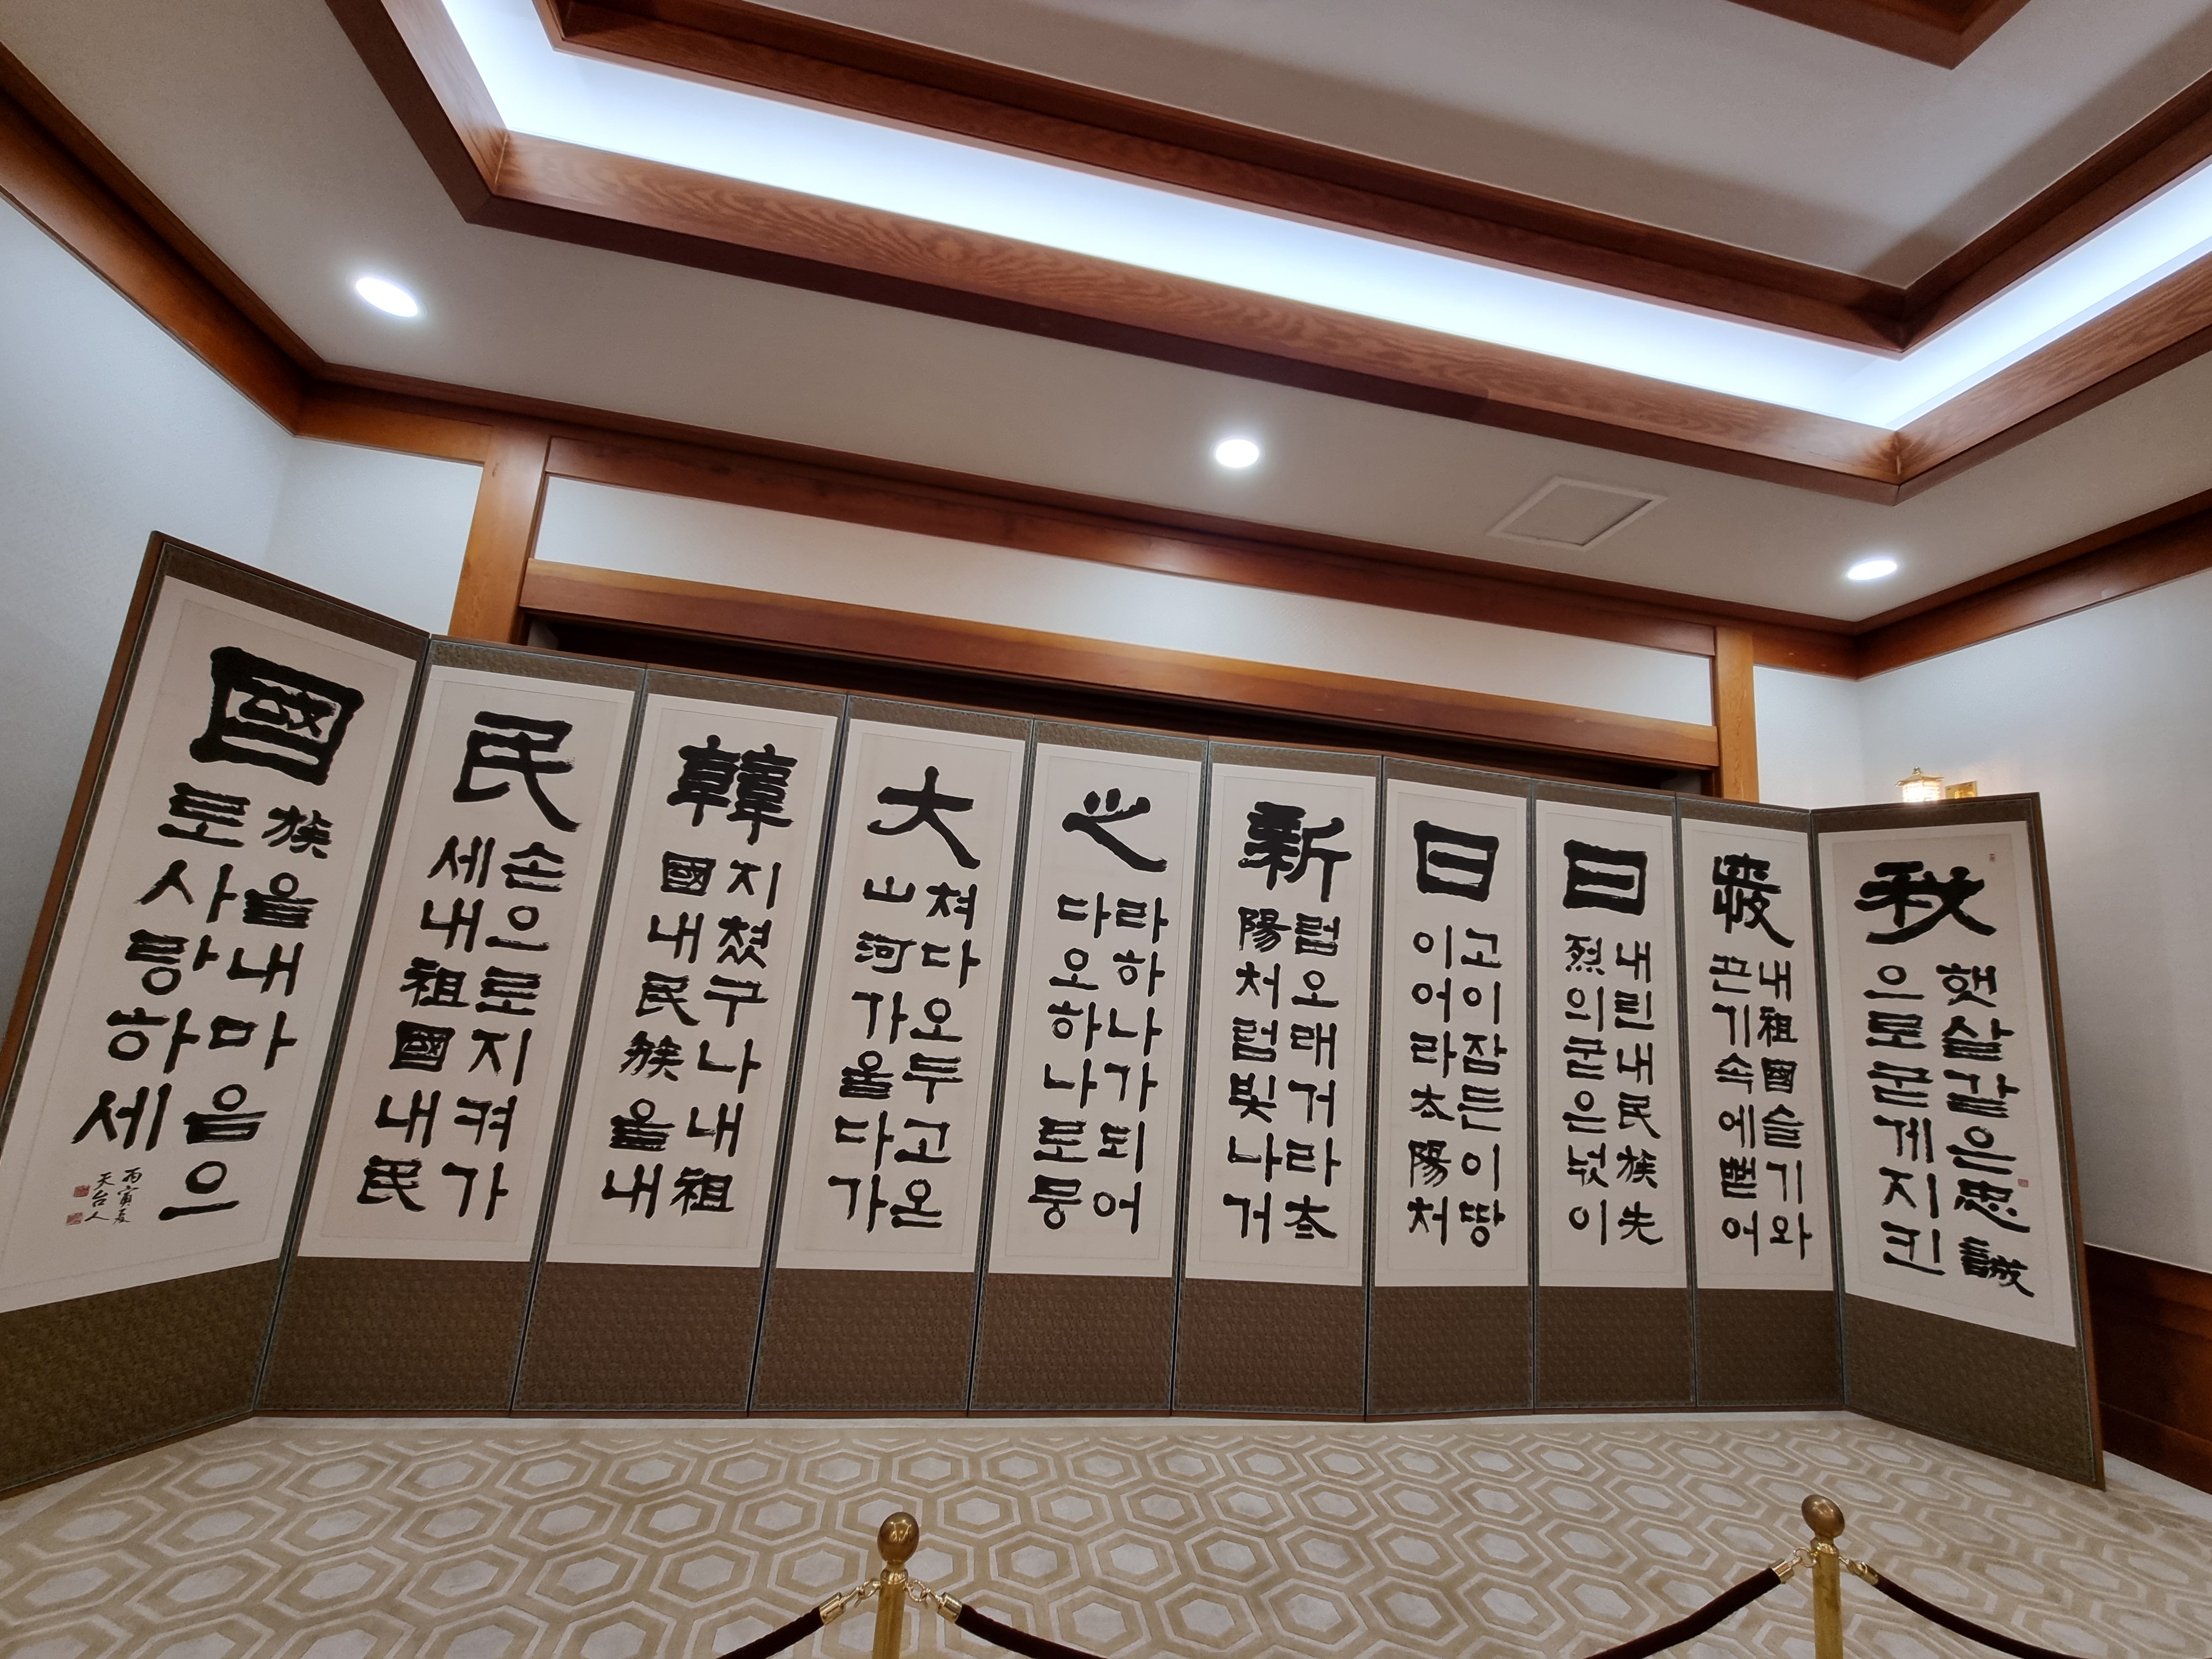 秋
햇살같은忠誠
으로굳게지킨
내祖國슬기와
끈기속에뻗어
日
내린내民族先
烈의굳은넋이
日
고이잠든이땅
이어라太陽처
新
럼오래거라太
陽처럼빛나거
之
라하나가되어
다오하나로뭉
大
쳐다오두고온
山河가울다가
韓
지쳤구나내祖
國내民族을내
民
손으로지켜가
세내祖國내民
國
族을내마음으
로사랑하세
丙寅夏
天台人